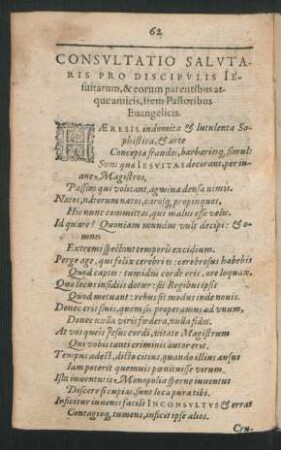 62
CONSVLTATIO SALVTA-
RIS PRO DISCIPVLIS IE-
suitarum, & eorum parentibus at-
que amicis, item Pastoribus
Euangelicis.
HÆRESIS indomita & luculenta So-
phistica, & arte
Concepta fraudis, barbarieq; simul:
Sunt qua IESVITAS decorant, per in-
ane Magistros,
Passim qui volitant, agmina densa nimis.
Natos, ndtorum natos, carosq; propinquos,
His nunc committas, qui malus esse velis.
Id quare? Quoniam mundus vult decipi: &
omnes
Extremi spectant temporis excidium.
Perge age, qui felix cerebri es: cerebrosus habebis
Quod captes: tumidus corde eris, ore loquax.
Quo locus insidiis detur: sit Regibus ipsis
Quod metuant: rebus sit modus inde nouis.
Donec erit finis, quem sic properamus ad vnum,
Donec nulla viris foedera, nulla fides.
At vos queis Jesus cordi, vitate Magistrum
Qui vobis tanti criminis autor erit.
Tempus adest, dicto citius, quando illius ausus
Iam poterit quemuis poenituisse virum.
Ista inuentutis Monopolia sperne inuentus
Discere si cupias, sunt loca pura tibi.
Inficitur iuuenis facile INCONSVLTVS & errat
Contagioq; tumens, inficit ipse alios.
Cru-